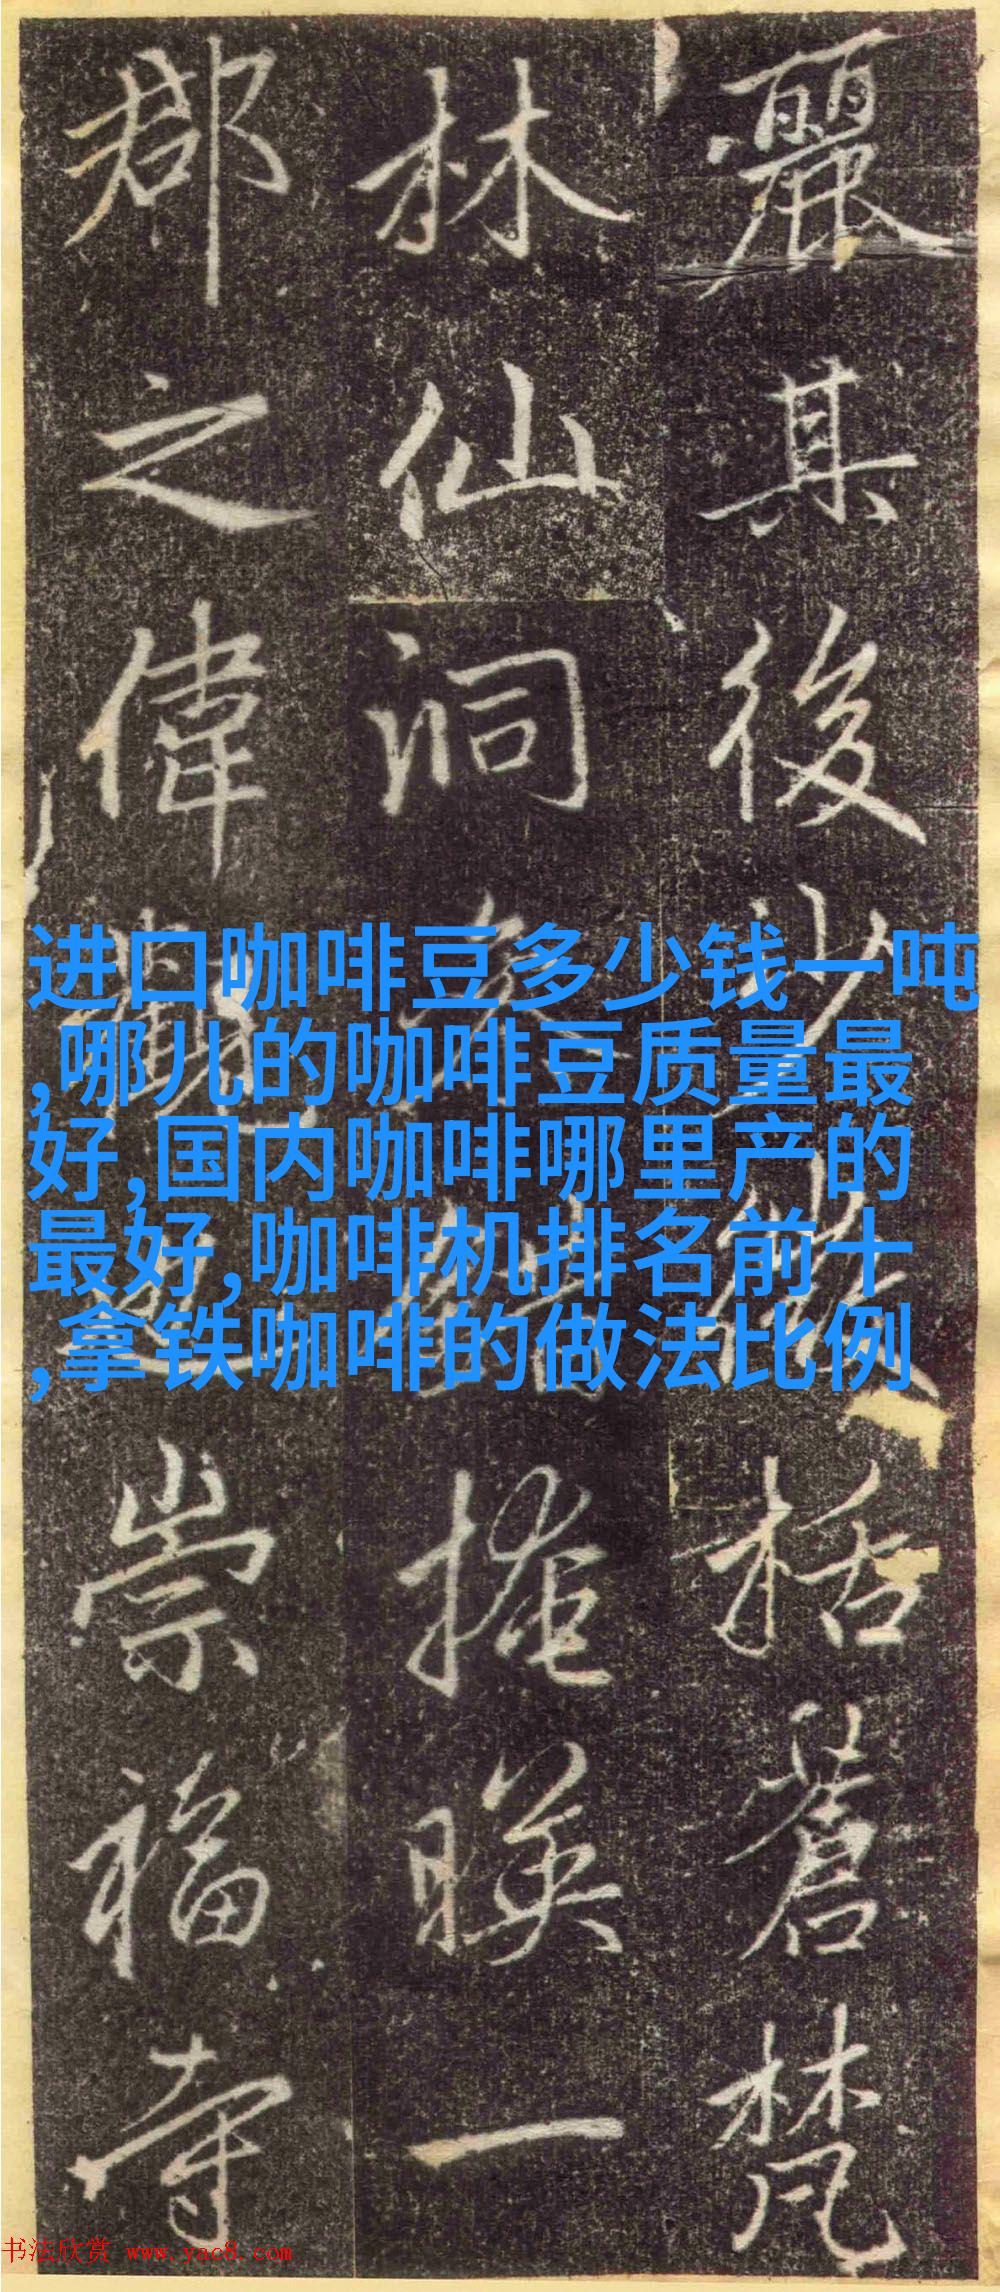 进口咖啡豆多少钱一吨
,哪儿的咖啡豆质量最
好,国内咖啡哪里产的
最好,咖啡机排名前十
,拿铁咖啡的做法比例
麗其後少微括蒼梵
林仙洞掩暎一
郡之偉觀崇福寺
书法欣赏 www.yac8.com